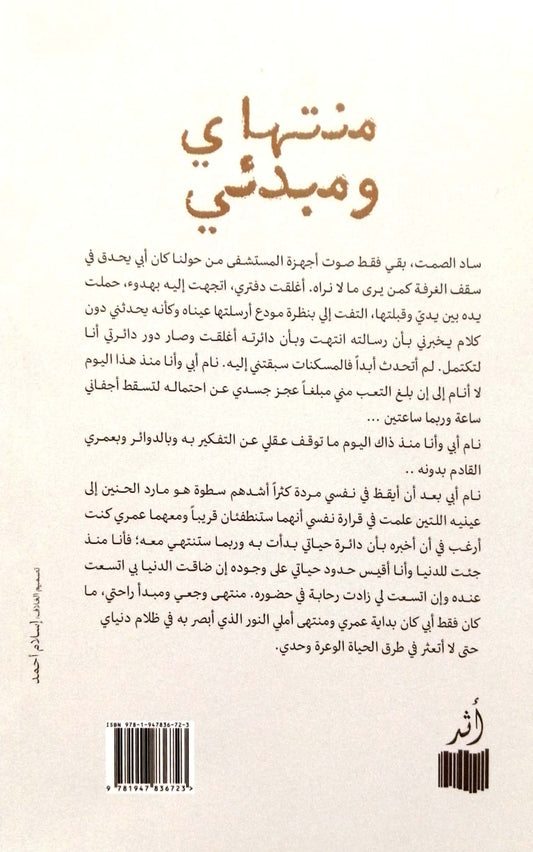 منتهاي
ومبدئي
ساد الصمت، بقي فقط صوت أجهزة المستشفى من حولنا كان أبي يحدق في
سقف الغرفة كمن يرى ما لا نراه. أغلقت دفتري، اتجهت إليه بهدوء، حملت
يده بين يديّ وقبلتها، التفت إلي بنظرة مودع أرسلتها عيناه وكأنه يحدثني دون
كلام يخبرني بأن رسالته انتهت وبأن دائرته أغلقت وصار دور دائرتي أنا
لتكتمل. لم أتحدث أبداً فالمسكنات سبقتني إليه. نام أبي وأنا منذ هذا اليوم
لا أنام إلى إن بلغ التعب مني مبلغاً عجز جسدي عن احتماله لتسقط أجفاني
ساعة وربما ساعتين ...
نام أبي وأنا منذ ذاك اليوم ما توقف عقلي عن التفكير به وبالدوائر وبعمري
القادم بدونه ..
نام أبي بعد أن أيقظ في نفسي مردة كثراً أشدهم سطوة هو مارد الحنين إلى
عينيه اللتين علمت في قرارة نفسي أنهما ستنطفئان قريباً ومعهما عمري كنت
أرغب في أن أخبره بأن دائرة حياتي بدأت به وربما ستنتهي معه؛ فأنا منذ
جئت للدنيا وأنا أقيس حدود حياتي على وجوده إن ضاقت الدنيا بي اتسعت
عنده وإن اتسعت لي زادت رحابة في حضوره. منتهى وجعي ومبدأ راحتي، ما
كان فقط أبي كان بداية عمري ومنتهى أملي النور الذي أبصر به في ظلام دنياي
حتى لا أتعثر في طرق الحياة الوعرة وحدي.
تصميم الغلاف إسلام أحمد
أثر
ISBN 978-1-947836-72-3
9 781947 836723